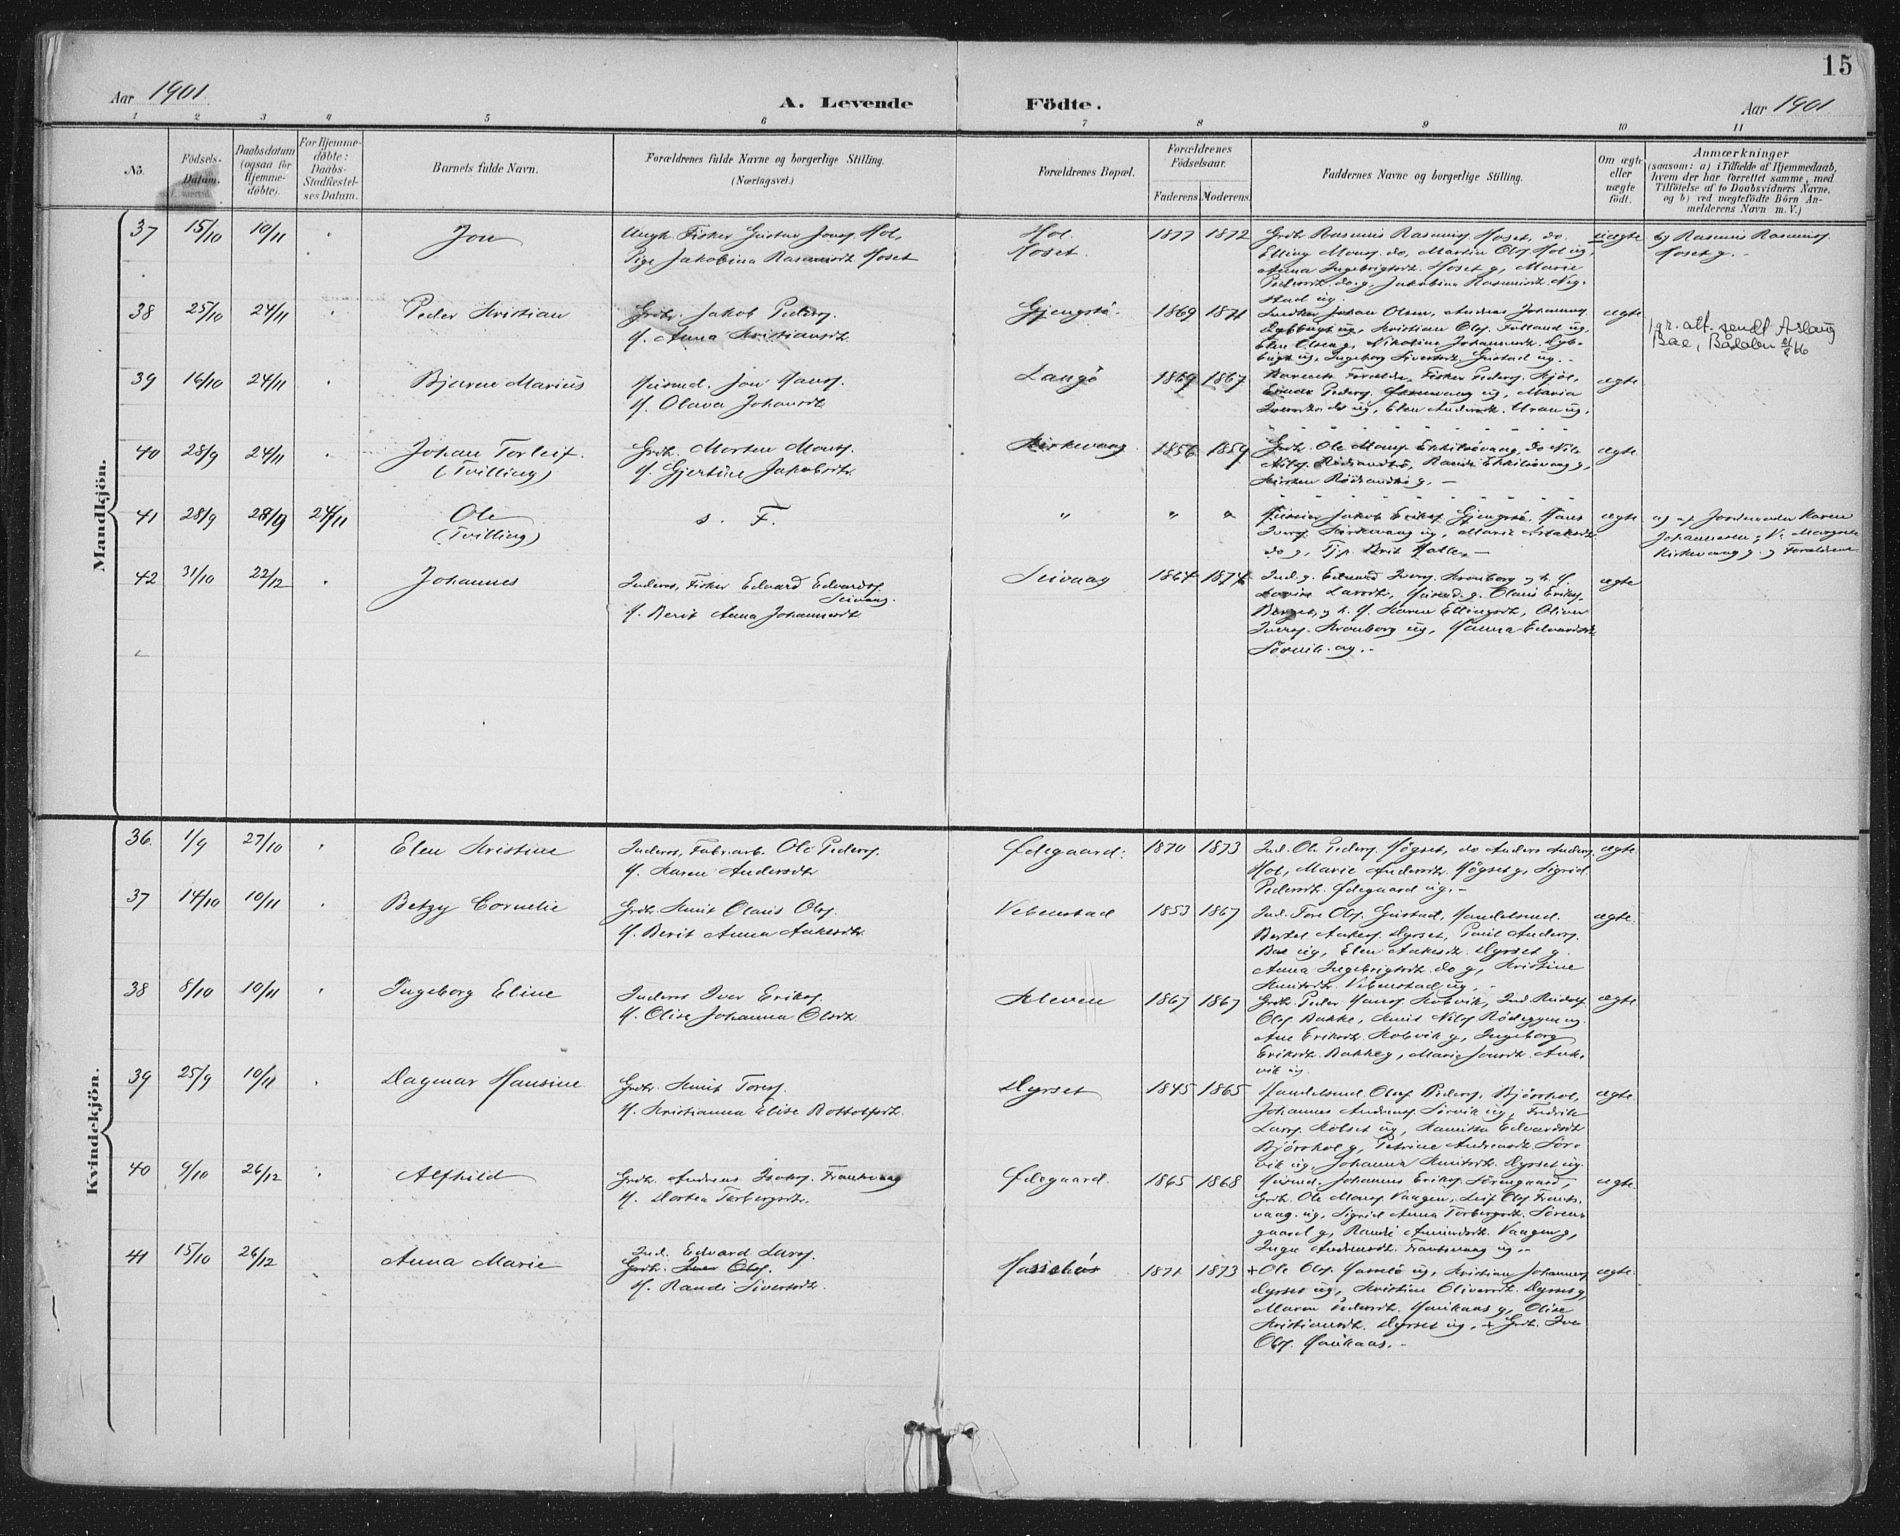 15
Aar 1901.
A. Levende Födte.
Aar 1901
1 2 3 4 5 6 7 8 9 10 11
No.
Födsels-Datum.
Daabsdatum (ogsaa for Hjemme-døbte).
For Hjemme-døbte: Daabs-Stadfæstel-ses Datum.
Barnets fulde Navn.
Forældrenes fulde Navne og borgerlige Stilling. (Næringsvei.)
Forældrenes Bopæl.
Forældrenes Födselsaar.
Faderens Moderens
Faddernes Navne og borgerlige Stilling.
Om ægte eller uægte födt.
Anmærkninger
(saasom: a) i Tilfælde af Hjemmedaab,
hvem der har forrettet samme, med
Tilföielse af to Daabsvidners Navne,
og b) ved uægtefödte Börn An-
melderens Navn m. V.)
Mandkjön.
37 15/10 10/11 Jon
Ungk. Fisker Gustav Jonss. Hol,
Pige Jakobina Rasmusdtr. Hoset
Hol.
Hoset.
1877 1872
Grdbr. Rasmus Rasmuss. Hoset, do.
Elling Monss. do, Martin Olss. Hol ug,
Anna Ingebrigtsdtr. Hoset g, Marie
Pedersdtr. do. g, Jakobina Rasmusdtr. Neg-
stad ug.
uægte
b) Rasmus Rasmuss.
Hoset g.
38 25/10 24/11 Peder Kristian
Grdbr. Jakob Peders.
H. Anna Kristiansdtr.
Gjengstö. 1869 1871
Johan Olsen, Andreas Johanness.
ug, Kristian Olss. Futland ug,
Elen Olsen g, Nikoline Johannesdtr.
ug, Ingeborg Sivertsdtr. Gustad ug.
ægte
1 gr. att. sendt Aslaug
Bae, Bådalen
39 16/10 24/11 Bjarne Marius
Huusmd. Jon Hanss.
H. Olava Johansdtr.
Langö 1869 1867
Barnets Forældre, Fisker Peders.
Peders. ug, Maria
Iversdtr. do ug, Elen Andersdtr. ug.
ægte
40 28/9 24/11 Johan Torleif.
(Tvilling)
Grdbr. Morten Monss.
H. Gjertine Jakobsdtr.
Kirkevaag 1856 1859
Grdbr. Ole Monss. Ekkilsövaag, do Nils
Nilss. Rödsandbö, Randi Ekkilsövaag g,
g.
ægte
41 28/9 28/9 24/11 Ole
(Tvilling)
s. F.
" " "
Jakob Erikss. Gjengstö, Hans
Iverss. Kirkevaag ug, Marie
do g, Tjp. Brit
ægte
a) af Jordemoder Karen
Johannesen, V. Margrete
Kirkevaag g. g Forældrene
42 31/10 22/12 Johannes
Inderst, Fisker Edvard Edvardss.
Seivaag.
H. Berit Anna Johannesdtr.
Seivaag 1864 1874
Ind. g. Edvard Iverss. Kronborg g h. H.
Larsdtr, Huusmd. g. Olaus Erikss.
Berget, g h. H. Karen Ellingsdtr, Oliver
Iverss. Kronborg ug, Hanna Edvardsdtr.
Sörvik ug.
ægte
Kvindekjön.
36. 1/9 27/10 Elen Kristine
Inderst, Fabr.arb. Ole Peders.
H. Karen Andersdtr.
Ødegaard. 1870 1873
Ind. Ole Peders. Högset, do Anders Anders.
Hol, Marie Andersdtr. Högset g, Sigrid
Pedersdtr. Ødegaard ug.
ægte
37 14/10 10/11 Betzy Cornelie
Grdbr. Knut Olaus Olss.
H. Berit Anna Ankersdtr.
Vebenstad 1853 1867
Ind. Tore Olss. Gustad, Handelsmd.
Bertel Ankers. Dyrset, Paul Anders.
Bae ug, Elen Ankersdtr. Dyrset g.
Anna Ingebrigtsdtr. do g, Kristine
Knutsdtr. Vebenstad ug.
ægte
38 8/10 10/11 Ingeborg Eline
Inderst Iver Erikss.
H. Olise Johanna Olsdtr.
Kleven 1867 1867
Grdbr. Peder Hanss. Kobvik, Ind. Rudolf
Olss. Bakke, Knut Nilss. Rödeggen ug.
Ane Eriksdtr. Kobvik g, Ingeborg
Eriksdtr. Bakke g, Marie Jonsdtr. Ank-
vik ug.
ægte
39 25/9 10/11 Dagmar Hansine
Grdbr. Knut Toress.
H. Kristianna Elise Bottolfsdtr.
Dyrset 1845 1865
Handelsmd. Oluf Peders. Bjørshol,
Johannes Andreass. Sörvik ug, Fredrik
Larss. Kolset ug, Edvardsdtr.
Bjørshol g, Petrine Andreasdtr. Sör-
vik ug, Johanna Knutsdtr. Dyrset ug.
ægte
40 9/10 26/12 Alfhild
Grdbr. Andreas Isakss. Frantsvaag
H. Dortea Torbergsdtr.
Ødegaard. 1865 1868
Huusmd. Johannes Erikss. Sörengaard,
Grdbr. Ole Monss. Vaagen, Leif Olss. Frants-
vaag ug, Sigrid Anna Torbergsdtr. Sören-
gaard g, Randi Amundsdtr. Vaagen g,
Inga Andreasdtr. Frantsvaag ug.
ægte
41 15/10 26/12 Anna Marie
Ind. Edvard Larss.
Grdbr. Iver Olss.
H. Randi Sivertsdtr.
1871 1873
+ Ole Olss. ug, Kristian Johanness.
Dyrset ug, Kristine Oliversdtr. Dyrset g,
Maren Pedersdtr. Haukaas g, Olise
Kristiansdtr. Dyrset ug, + Grdb. Iver
Olss. Haukaas.
ægte